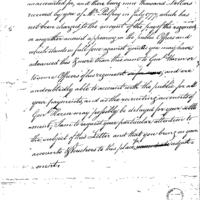 unaccounted for, and there being nine thousand Dollars
received by you of Mr. Palfrey in July 1777 which has
not been charged to the amount of the pay of the
or any other amount appearing in the public Offices and
which stands in full force against you tho you may have
advanced this & more than this sum to Genl Warner or
to some Officers of his regiment and you are
undoubtedly able to account with the public for all
your payments, and as the remaining accounts of
Genl may possibly be delayed for your settle
ment, I am to request your particular attention to
the subject of this Letter and that you bring in your
accounts & Vouchers to this place adjust
ment.